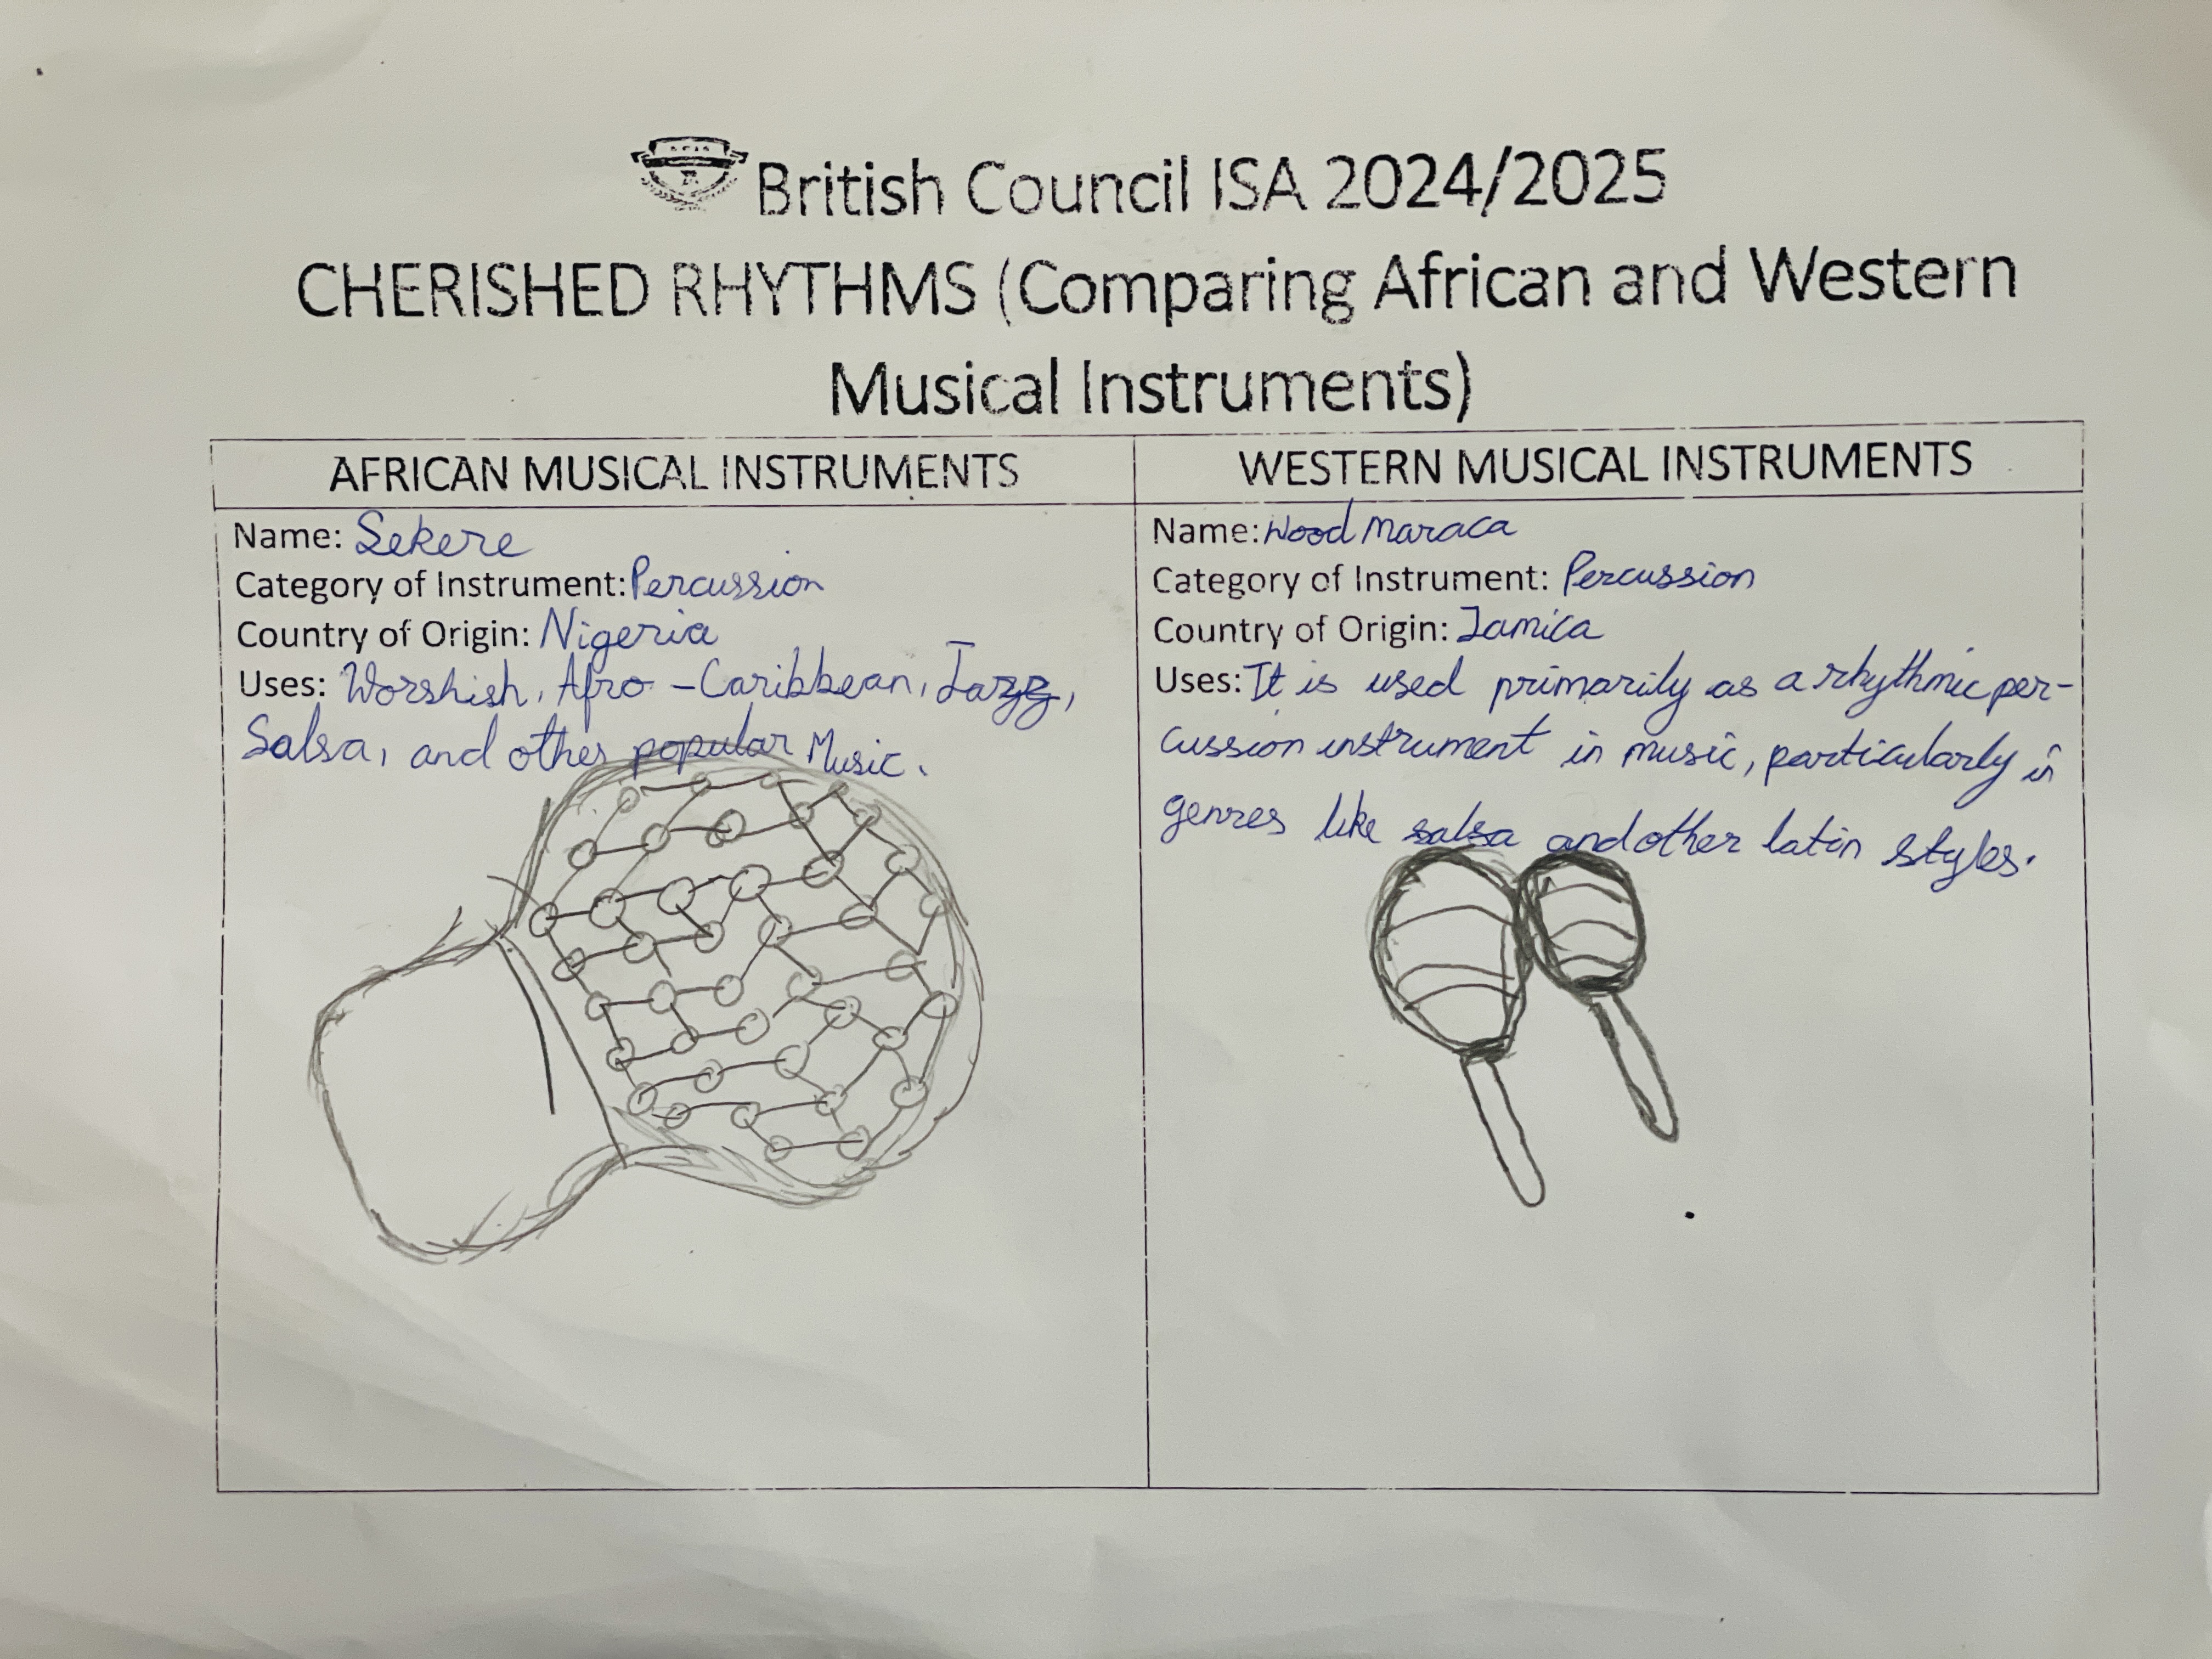 British Council ISA 2024/2025
CHERISHED RHYTHMS (Comparing African and Western
Musical Instruments)
AFRICAN MUSICAL INSTRUMENTS
Name: Sekere
Category of Instrument: Percussion
Country of Origin: Nigeria
Uses: Worshish, Afro-Caribbean, Jazz,
Salsa, and other popular Music.
WESTERN MUSICAL INSTRUMENTS
Name: Wood Maraca
Category of Instrument: Percussion
Country of Origin: Jamica
Uses: It is used primarily as a rhythmic per-
cussion instrument in music, particularly in
genres like salsa and other latin styles.